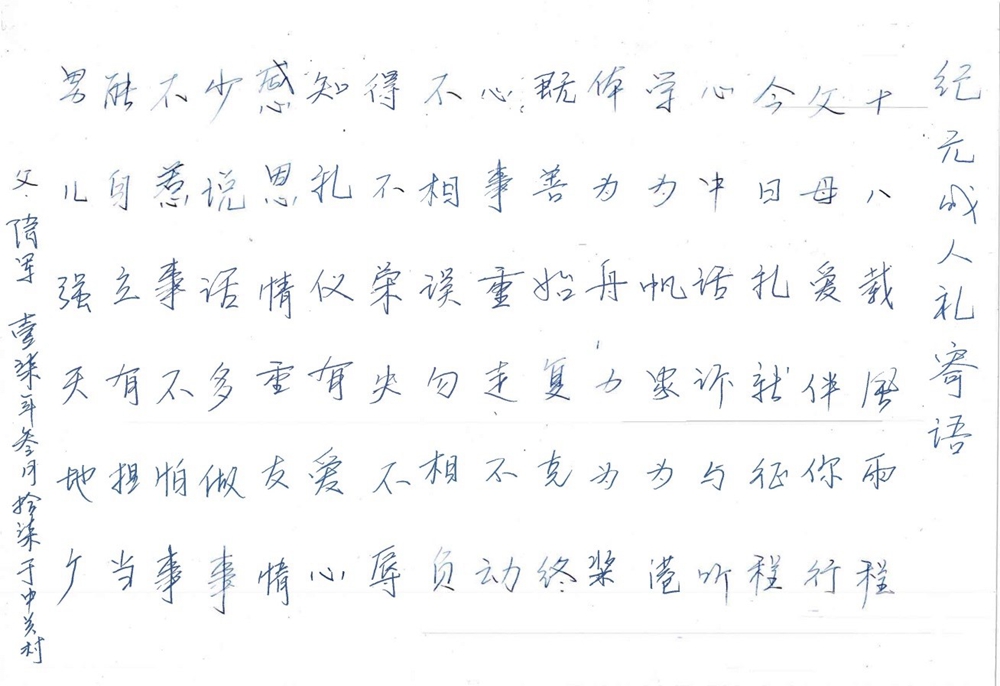 纪元成人礼寄语
十八载风雨程
父母爱伴你行
今日礼就征程
心中话诉与听
学为帆家为港
体为舟力为桨
既善始复克终
心事重走不动
不相误勿相负
得不荣失不辱
知礼仪有爱心
感恩情重友情
少说话多做事
不惹事不怕事
能自立有担当
男儿强天地广
父 军 壹柒年叁月拾柒于中关村